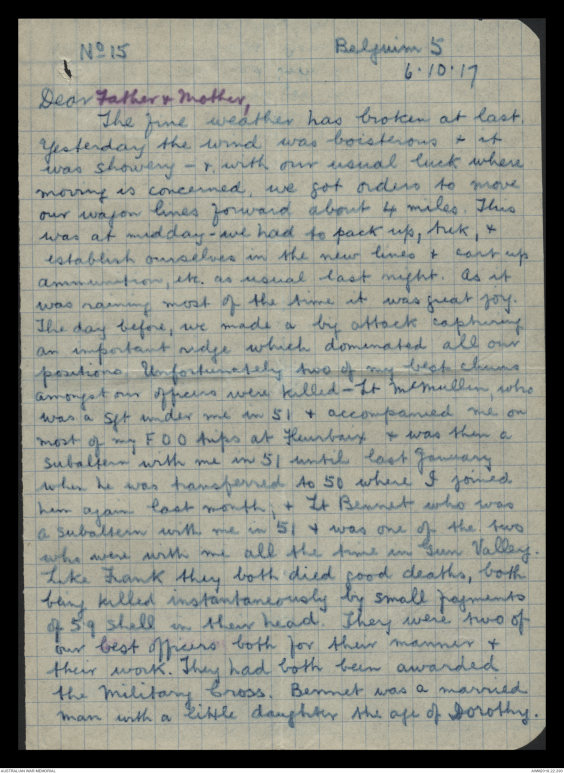 No 15
Belguim 5
6.10.17
Dear Father & Mother,
The fine weather has broken at last.
Yesterday the wind was boisterous & it
was showery – & with our usual luck where
moving is concerned, we got orders to move
our wagon lines forward about 4 miles. This
was at midday – we had to pack up, trek, &
establish ourselves in the new lines & cart up
ammunition, etc. as usual last night. As it
was raining most of the time it was great joy.
The day before, we made a big attack capturing
an important ridge which dominated all our
positions. Unfortunately two of my best chums
amongst our officers were killed – Lt McMullin, who
was a Sgt under me in 51 & accompanied me on
most of my F O O trips at Fleurbaix & was then a
Subaltern with me in 51 until last January
when he was transferred to 50 where I joined
him again last month, & Lt Bennet who was
a subaltern with me in 51 & was one of the two
who were with me all the time in Gun Valley.
Like Frank they both died good deaths, both
being killed instantaneously by small fragments
of 5.9 shell in their head. They were two of
our best officers both for their manner &
their work. They had both been awarded
the Military Cross. Bennet was a married
man with a little daughter the age of Dorothy.
AUSTRALIAN WAR MEMORIAL